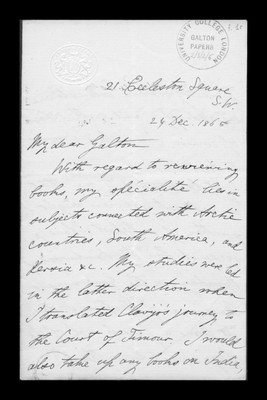 UNIVERSITY COLLEGE LONDON
GALTON
PAPERS
21 Eccleston Square
S.W.
24 Dec 186
My dear Galton
With regard to reviewing
books, my spécialité lies in
subjects connected with Arctic
countries, South America, and
Persia &c. My studies were led
in the latter direction when
I translated Clavijo's journey to
the Court of Timour. I would
also take up any books on India,